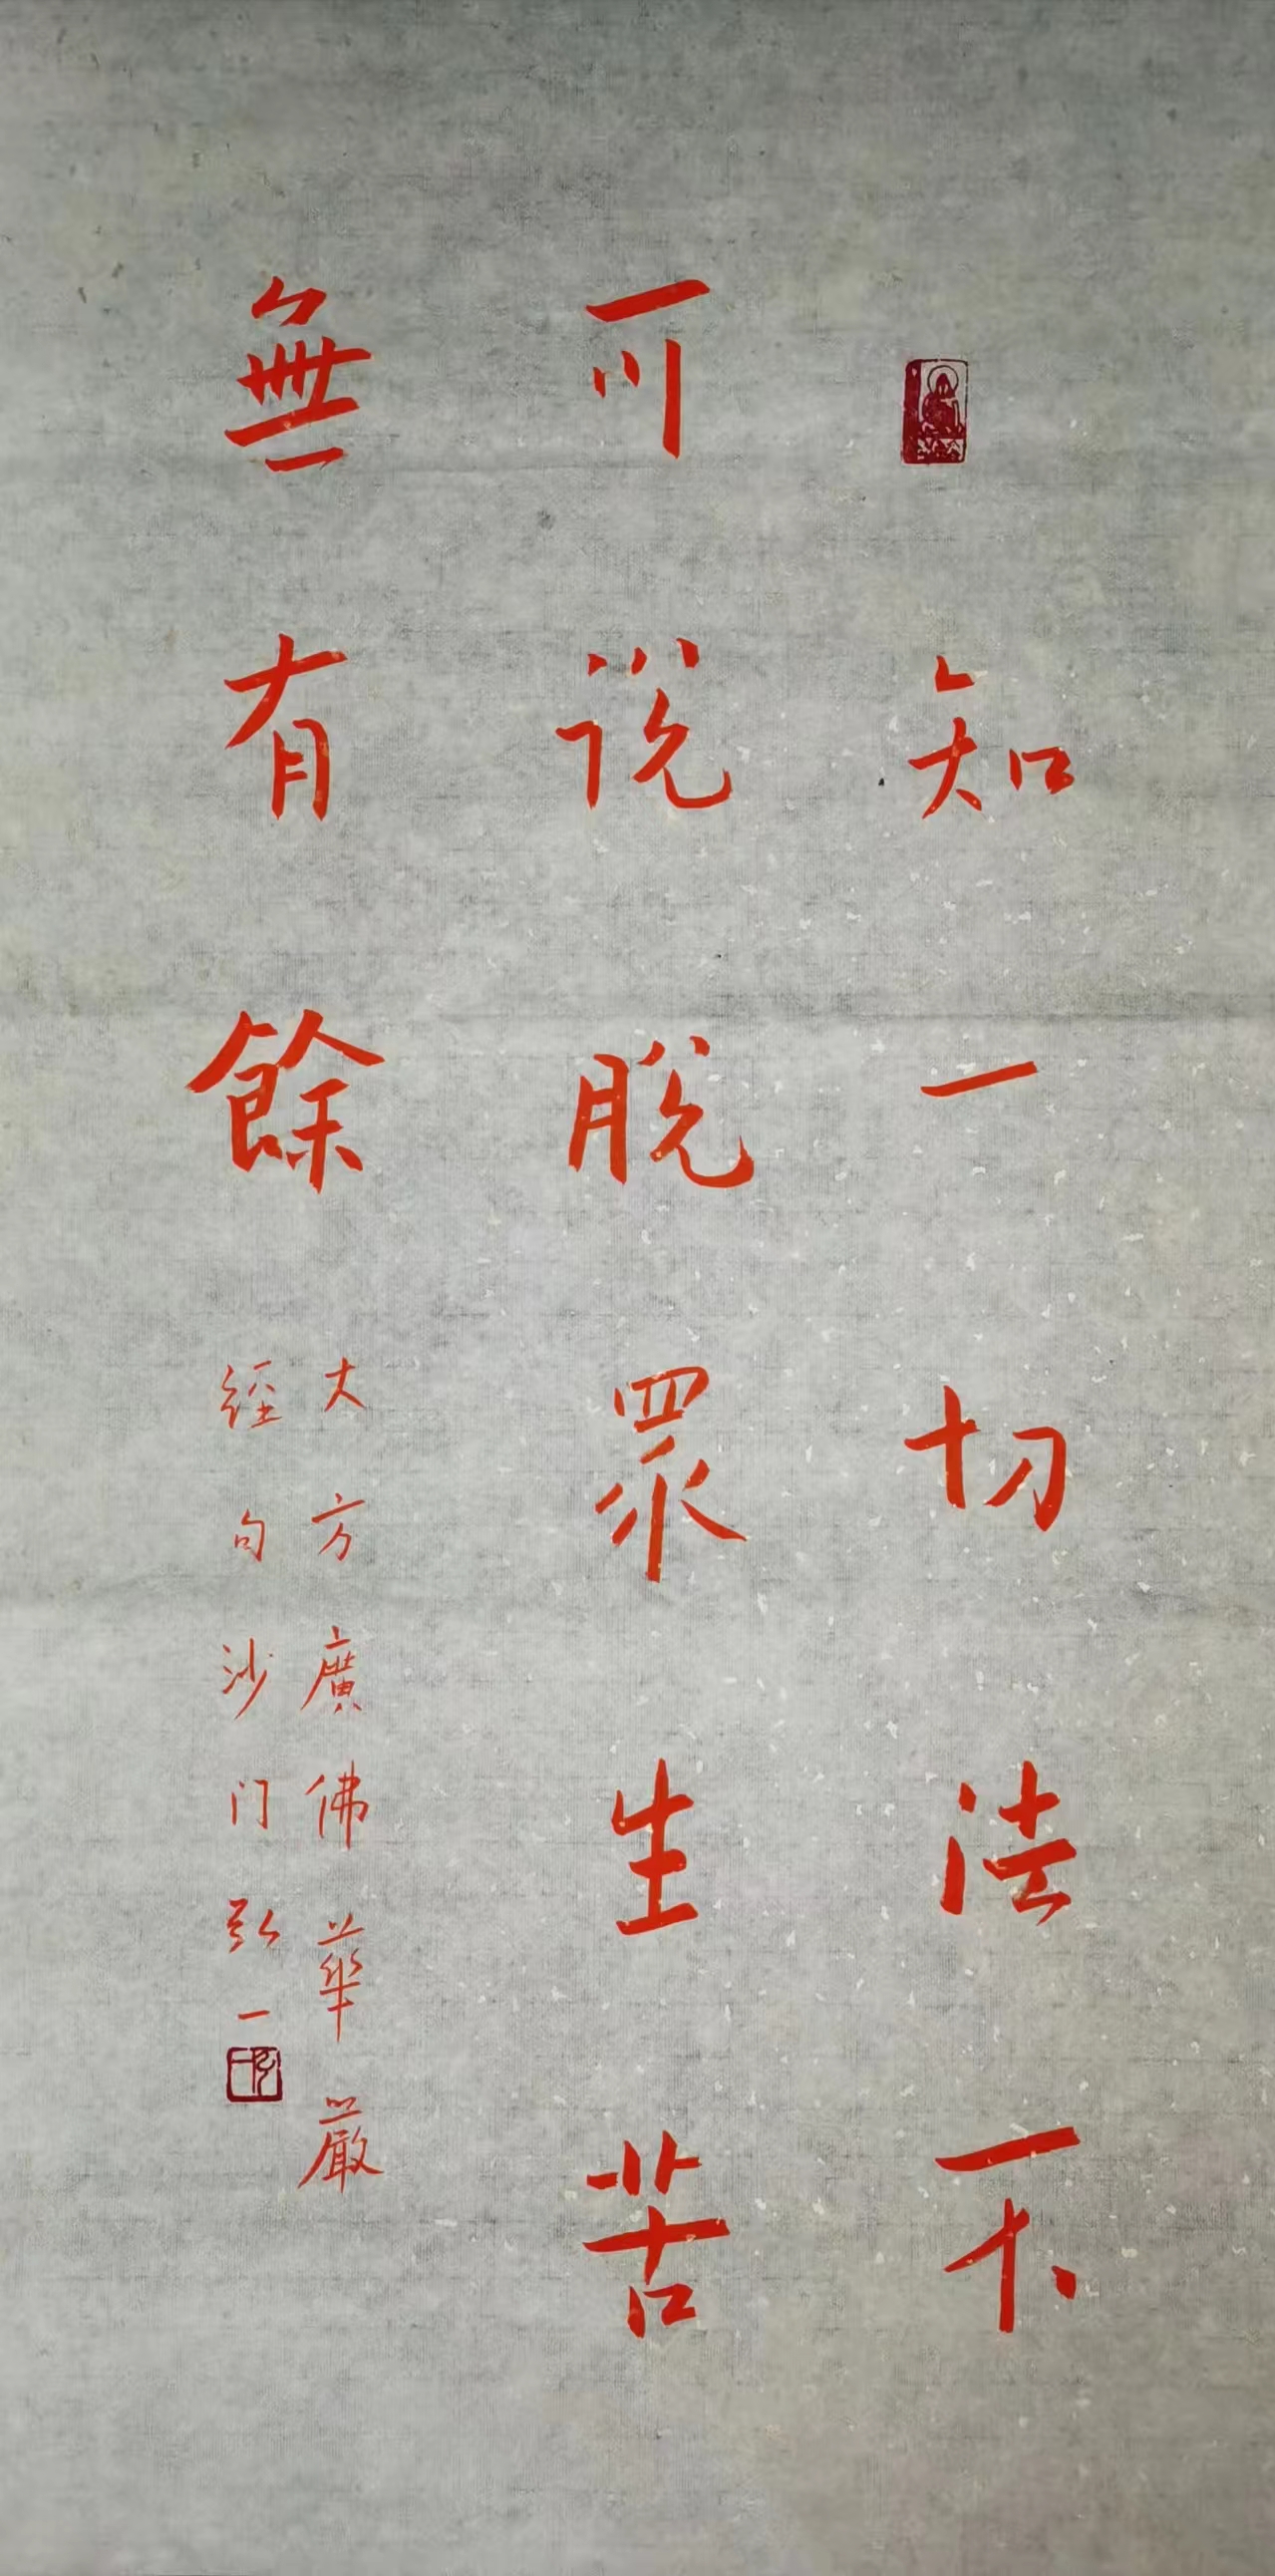 知一切法不
可說脫眾生苦
無有餘
大方廣佛華嚴
經句沙门弘一